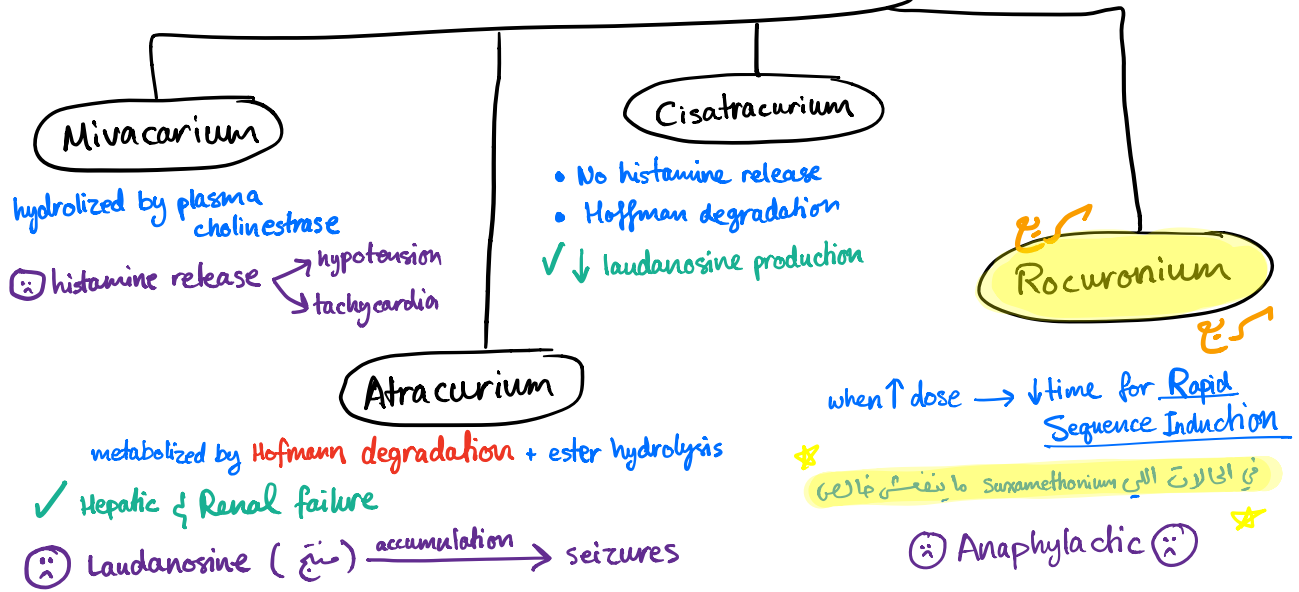 Mivacarium
hydrolized by plasma
cholinestrase
histamine release
hypotension
tachycardia
Atracurium
metabolized by Hofmann degradation + ester hydrolysis
✓ Hepatic & Renal failure
Laudanosine ( منتج ) accumulation → seizures
Cisatracurium
• No histamine release
• Hoffman degradation
✓ ↓ laudanosine production
Rocuronium
when ↑ dose → ↓ time for Rapid
Sequence Induction
في الحالات اللي Suxamethonium ما ينفعش خالص
Anaphylactic